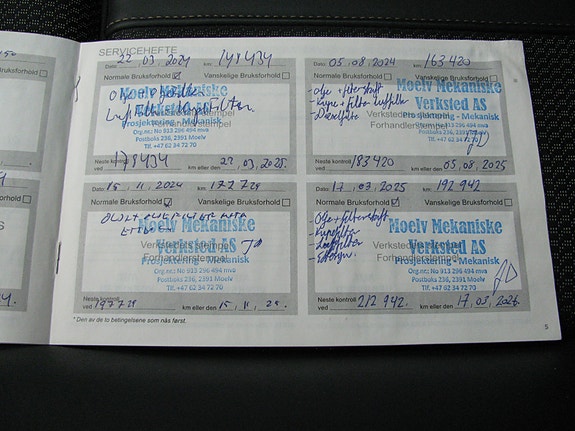 SERVICEHEFTE
Dato 22 03 2024 km: 148434
Normale Bruksforhold Vanskelige Bruksforhold
Moelv Mekaniske
Verksted AS
Prosjektering - Mekanisk
Forhandlerstempel
Org.nr.: No 913 296 494 mva
Postboks 236, 2391 Moelv
Tlf. +47 62 34 72 70
Neste kontroll
ved 178434 km eller den 22, 03, 2025.
Dato 05.08.2024 km: 163420
Normale Bruksforhold Vanskelige Bruksforhold
- Olje + filterskift
Moelv Mekaniske
Verksted AS
Verkstedets stempel
Prosjektering - Mekanisk
Forhandlerstempel
Org.nr.: No 913 296 494 mva
Postboks 236, 2391 Moelv
Tlf. +47 62 34 72 70
Neste kontroll
ved 183420 km eller den 05, 08, 2025
Dato 15, 11, 2024 km: 177729
Normale Bruksforhold Vanskelige Bruksforhold
Moelv Mekaniske
Verksted AS
Verkstedets stempel
Prosjektering - Mekanisk
Forhandlerstempel
Org.nr.: No 913 296 494 mva
Postboks 236, 2391 Moelv
Tlf. +47 62 34 72 70
Neste kontroll
ved 197729 km eller den 15, 11, 25.
Dato 17, 03, 2025 km: 192942
Normale Bruksforhold Vanskelige Bruksforhold
- Olje + filterskift
- Kupefilter
- Luftfilter
Moelv Mekaniske
Verksted AS
Verkstedets stempel
Prosjektering - Mekanisk
Forhandlerstempel
Org.nr.: No 913 296 494 mva
Postboks 236, 2391 Moelv
Tlf. +47 62 34 72 70
Neste kontroll
ved 212 942. km eller den 17, 03, 2026.
* Den av de to betingelsene som nås først.
5